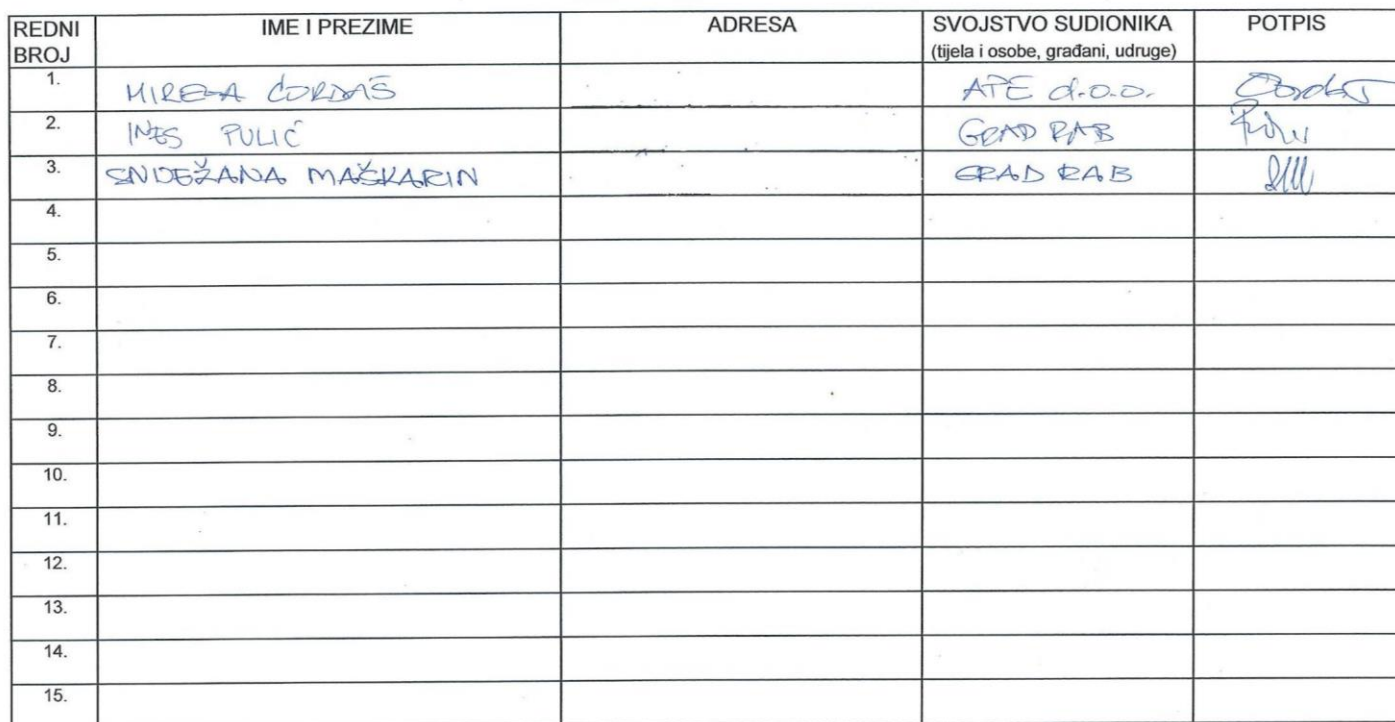 REDNI BROJ IME I PREZIME ADRESA SVOJSTVO SUDIONIKA (tijela i osobe, građani, udruge) POTPIS
1. MIRELA ĆORDAŠ ATE d.o.o.
2. INES PULIĆ GRAD RAB
3. SNJEŽANA MAŠKARIN GRAD RAB
4.
5.
6.
7.
8.
9.
10.
11.
12.
13.
14.
15.